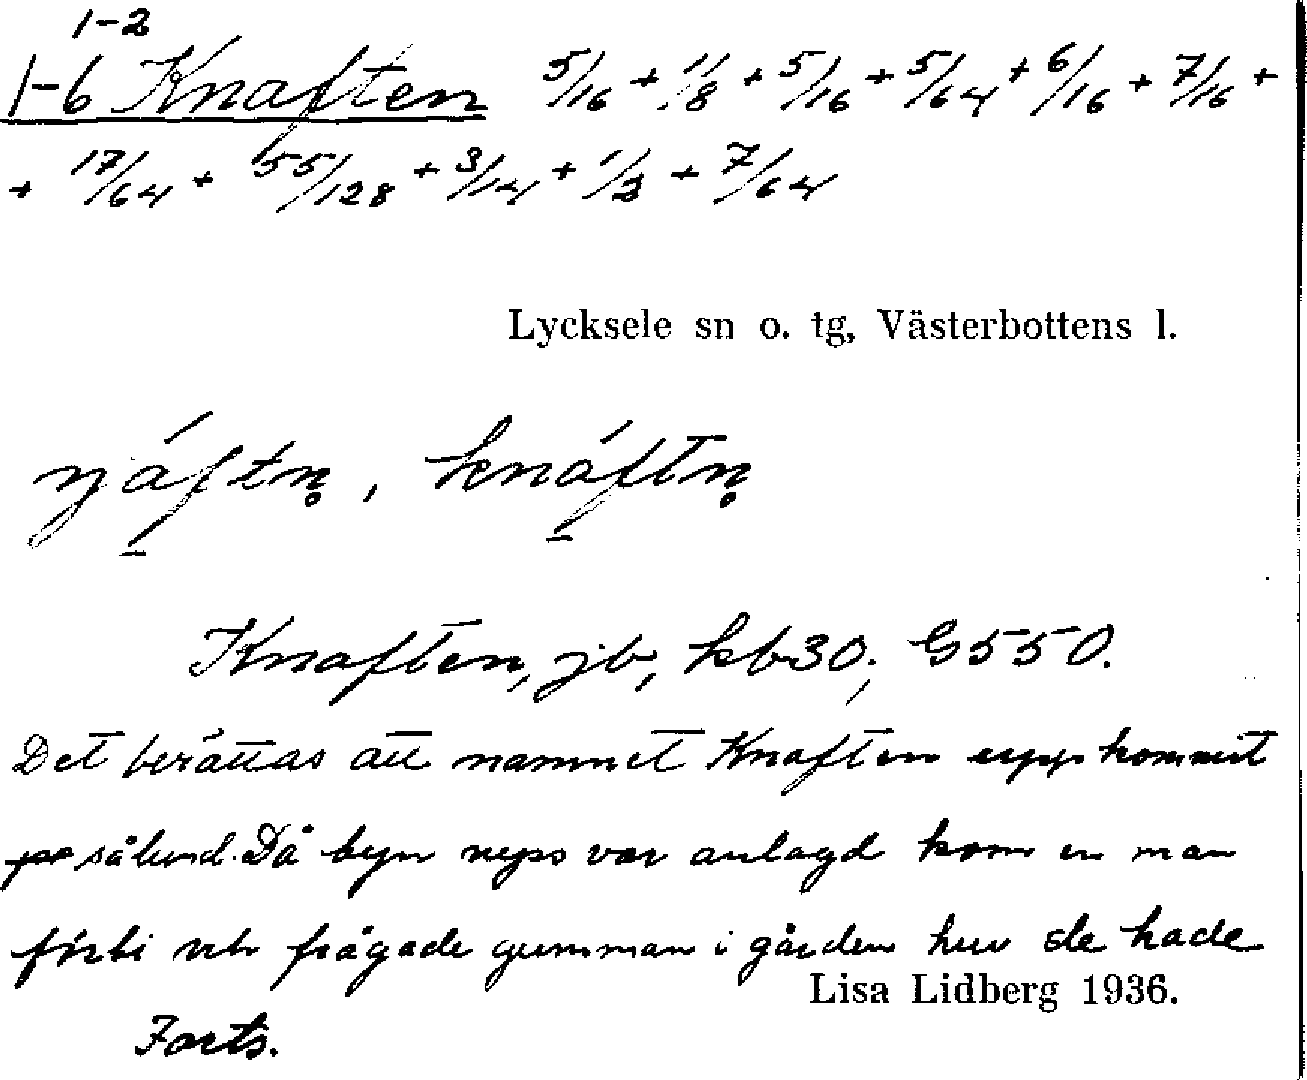 1-2
1-6 Knaften 5/16 + 1/8 + 5/16 + 5/64 + 6/16 + 7/16 +
+ 17/64 + 55/128 + 3/14 + 1/3 + 7/64
Lycksele sn o. tg, Västerbottens l.
ŋáftn̥, knáftn̥
Knaften, jb, kb30, G550.
Det berättas att namnet Knaften uppkommit
sålund. Då byn nyss var anlagd kom en man
förbi och frågade gumman i gården hur de hade
Lisa Lidberg 1936.
Forts.